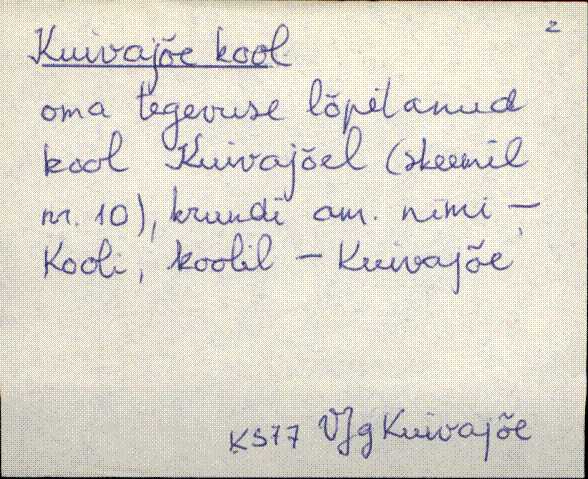 2
Kuivajõe kool
oma tegevuse lõpetanud
kool Kuivajõel (skeemil
nr. 10), krundi am. nimi –
Kooli, koolil – Kuivajõe
KS77 VJg Kuivajõe